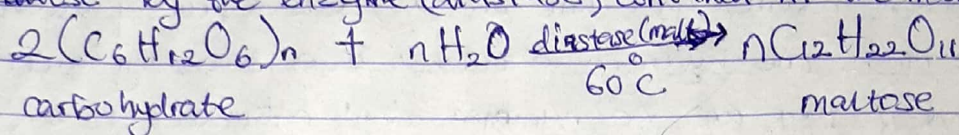 2(C6H12O6)n + nH2O diastase(malt)→ nC12H22O11
60°C
carbohydrate maltose